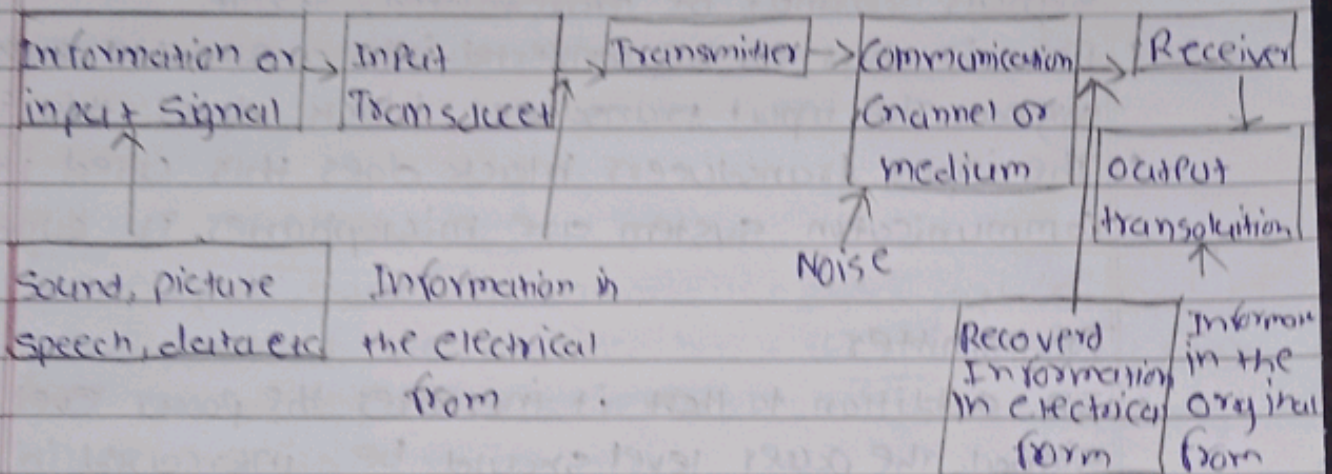 Information or
input signal
Input
Transducer
Transmitter
Communication
Channel or
medium
Receiver
output
Noise
Sound, picture
speech, data etc
Information in
the electrical
from
Recoverd
Information
in electrical
form
Informon
in the
orginal
from